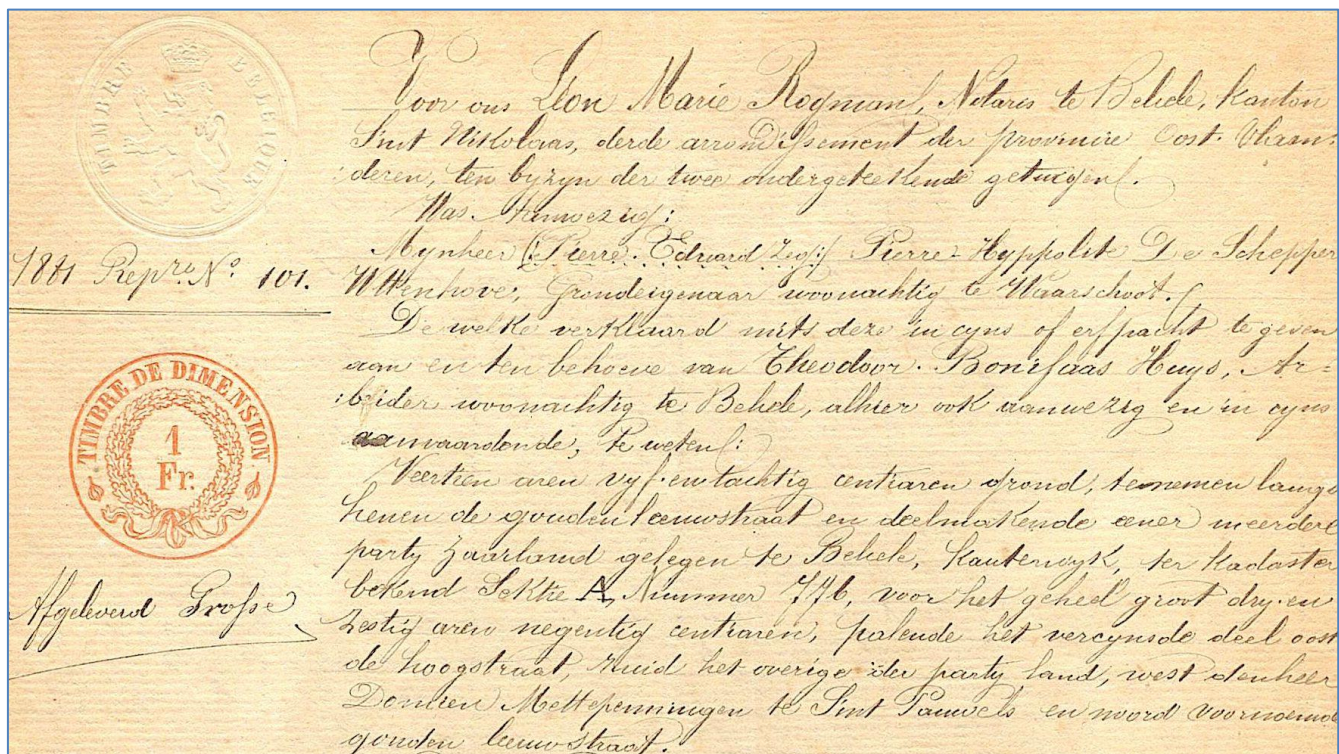 TIMBRE BELGIQUE
1881 Repre. No 101.
TIMBRE DE DIMENSION
1
Fr.
Afgeleverd Grosse
Voor ons Léon Marie Rogman, Notaris te Belcele, Kanton
Sint Nikolaas, derde arrondissement der provincie Oost-Vlaan-
deren, ten byzyn der twee ondergeteekende getuigen.
Was Aanwezig:
Mynheer (:Pierre-Edward zeg:) Pierre-Hyppolit De Schepper
Wttenhove, Grondeigenaar woonachtig te Waarschoot.
De welke verklaard mits deze in cyns of erfpacht te geven
aan en ten behoeve van Theodoor-Bonifaas Huys, Ar=
beider woonachtig te Belcele, alhier ook aanwezig en in cyns
aanvaardende, te weten:
Veertien aren vyf-en tachtig centiaren grond, te nemen langs
henen de gouden leeuwstraat en deelmakende eener meerdere
party zaailand gelegen te Belcele, Kauterwyk, ter Kadaster
bekend Sektie A, Nummer 776, voor het geheel groot dry-en
zestig aren negentig centiaren, palende het vercynsde deel oost
de hoogstraat, zuid het overige der party land, west den heer
Domien Mettepenningen te Sint Pauwels en noord voornoemde
gouden leeuwstraat.